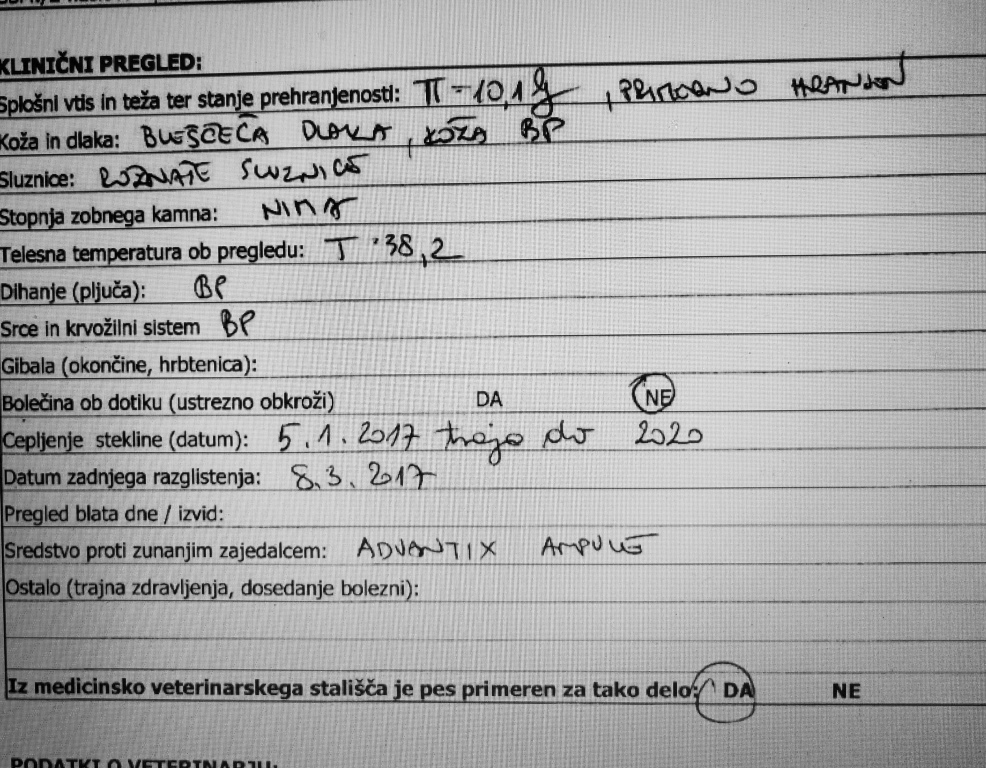 KLINIČNI PREGLED:
Splošni vtis in teža ter stanje prehranjenosti: TT-10,1 , PRIMERNO HRANJEN
Koža in dlaka: BLEŠČEČA DLAKA, KOŽA BP
Sluznice: ROŽNATE SLUZNICE
Stopnja zobnega kamna: NIMA
Telesna temperatura ob pregledu: T 38,2
Dihanje (pljuča): BP
Srce in krvožilni sistem BP
Gibala (okončine, hrbtenica):
Bolečina ob dotiku (ustrezno obkroži) DA NE
Cepljenje stekline (datum): 5.1.2017 traja do 2020
Datum zadnjega razglistenja: 8.3.2017
Pregled blata dne / izvid:
Sredstvo proti zunanjim zajedalcem: ADVANTIX AMPULE
Ostalo (trajna zdravljenja, dosedanje bolezni):
Iz medicinsko veterinarskega stališča je pes primeren za tako delo: DA NE
PODATKI O VETERINARJU: